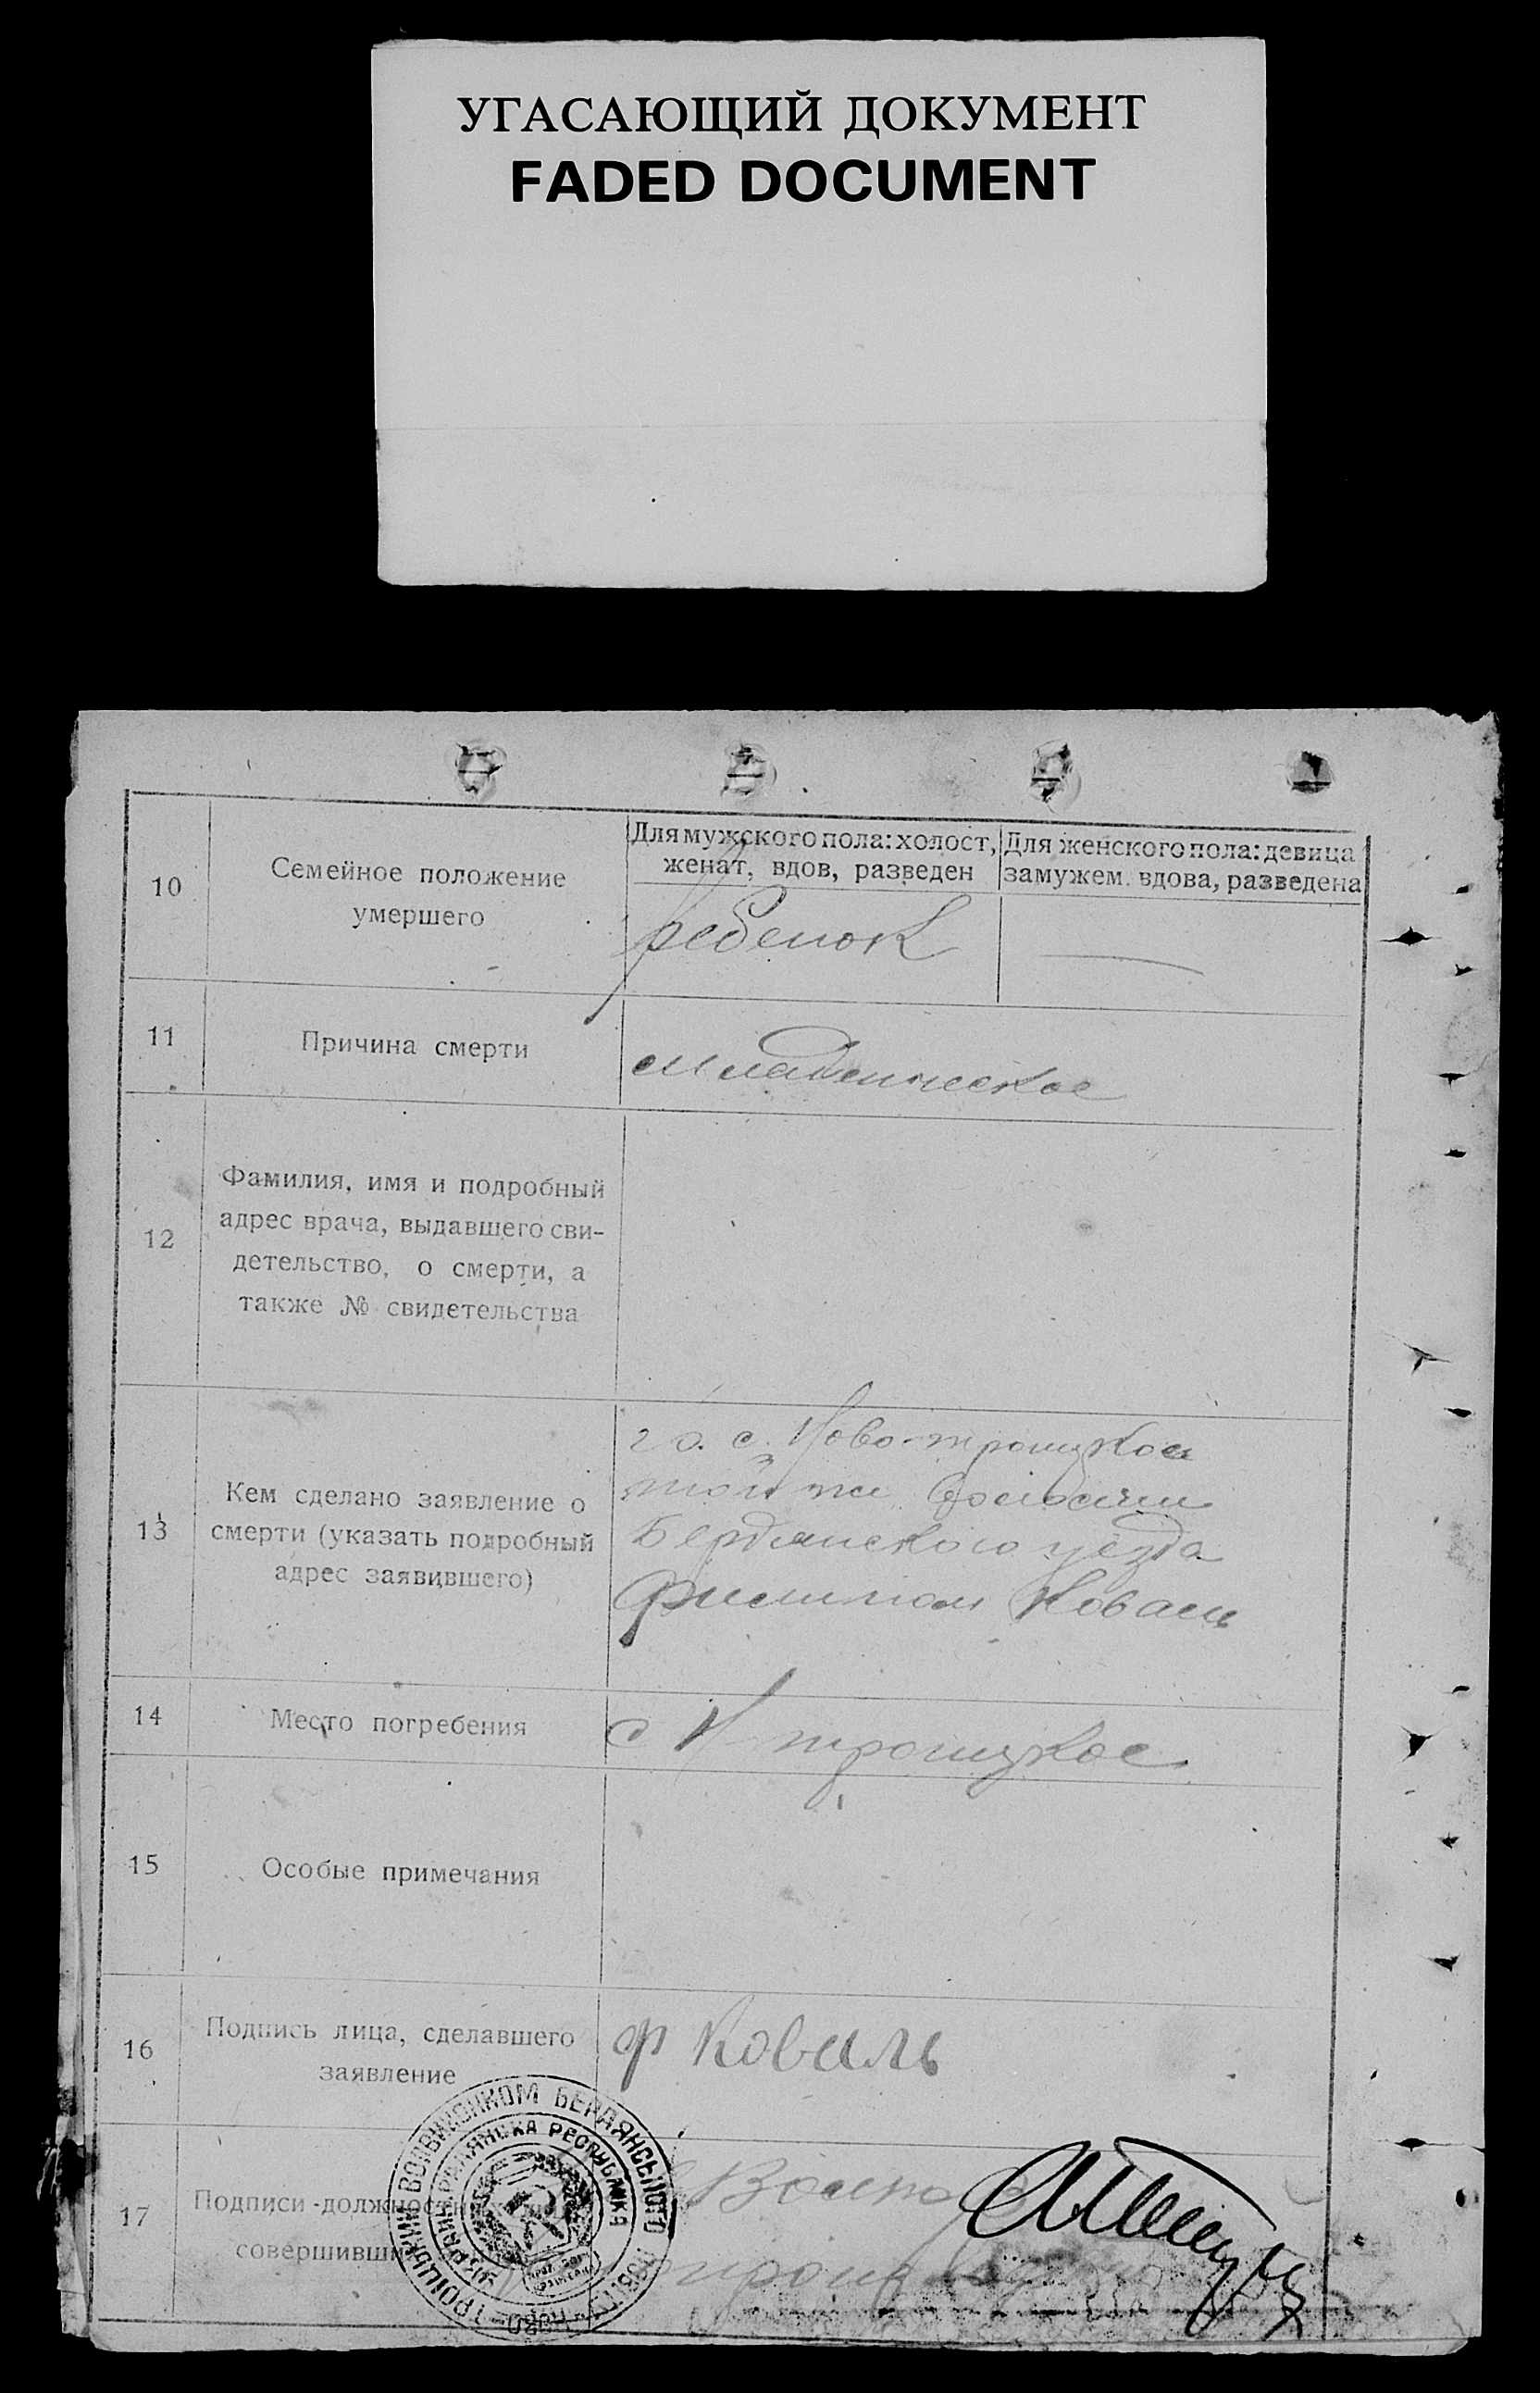 УГАСАЮЩИЙ ДОКУМЕНТ
FADED DOCUMENT
10
Семейное положение
умершего
Для мужского пола: холост,
женат, вдов, разведен
Для женского пола: девица
замужем. вдова, разведена
ребенок
11
Причина смерти
младенческое
12
Фамилия, имя и подробный
адрес врача, выдавшего сви-
детельство, о смерти, а
также № свидетельства
13
Кем сделано заявление о
смерти (указать подробный
адрес заявившего)
с. Ново-троицкое
той же волости
Бердянского уезда
Филимон Коваль
14
Место погребения
с Н троицкое
15
Особые примечания
16
Подпись лица, сделавшего
заявление
Ф Коваль
17
Подписи должност
совершивши
ТРОЇЦЬКИЙ ВОЛВИКОНКОМ БЕРДЯНСЬКОГО
РАДЯНСЬКА РЕСПУБЛИКА